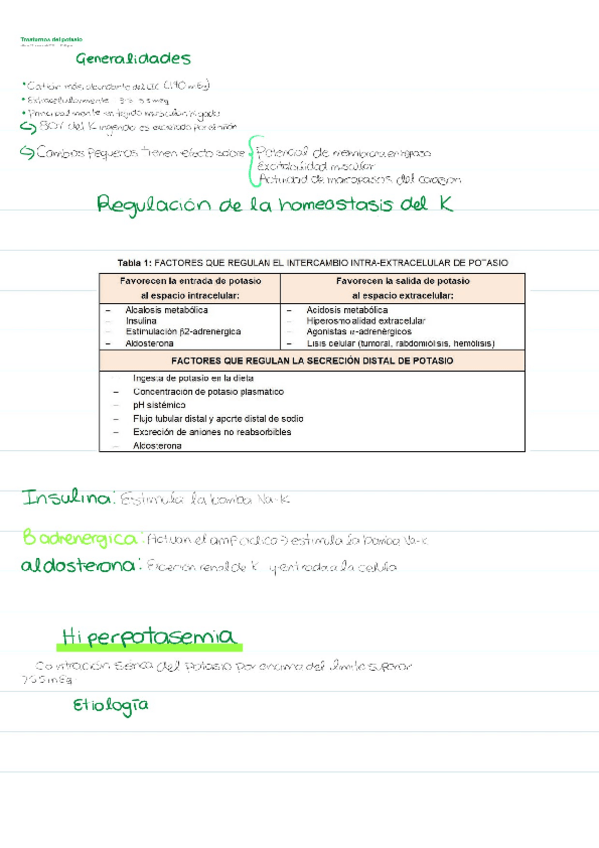 Trastornos del potasio
Generalidades
• Cation más abundante del LIC (140 mEq)
• Extracelularmente 3.5-5.5 meq
• Principalmente en tejido muscular, hígado
80% del K ingerido es excretado por el riñón
Cambios pequeños tienen efecto sobre
Potencial de membrana en reposo
Excitabilidad muscular
Actividad de marcapasos del corazon
Regulación de la homeostasis del K
Tabla 1: FACTORES QUE REGULAN EL INTERCAMBIO INTRA-EXTRACELULAR DE POTASIO
Favorecen la entrada de potasio al espacio intracelular:
– Alcalosis metabólica
– Insulina
– Estimulación β2-adrenergica
– Aldosterona
Favorecen la salida de potasio al espacio extracelular:
– Acidosis metabólica
– Hiperosmolalidad extracelular
– Agonistas α-adrenérgicos
– Lisis celular (tumoral, rabdomiolisis, hemólisis)
FACTORES QUE REGULAN LA SECRECIÓN DISTAL DE POTASIO
– Ingesta de potasio en la dieta
– Concentración de potasio plasmático
– pH sistémico
– Flujo tubular distal y aporte distal de sodio
– Excreción de aniones no reabsorbibles
– Aldosterona
Insulina: Estimula la bomba Na-K
B adrenergica: Activan el amp ciclico → estimula la bomba Na-K
aldosterona: Excrecion renal de K y entrada a la celula
Hiperpotasemia
sérica del potasio por encima del limite superior
Etiología